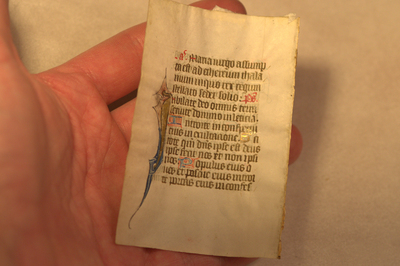 an̄. Maria uirgo assump
ta est ad ethereum thala
mum in quo rex regum
stellato sedet solio. ps.
Iubilate deo omnis terra
seruite domino in leticia
Introite in conspectu
eius in exultatione
tote qm̄ dn̄s ipse est deus
ipse fecit nos et non ipsi
nos Populus eius
ues et pascue eius introi
te portas eius in confes